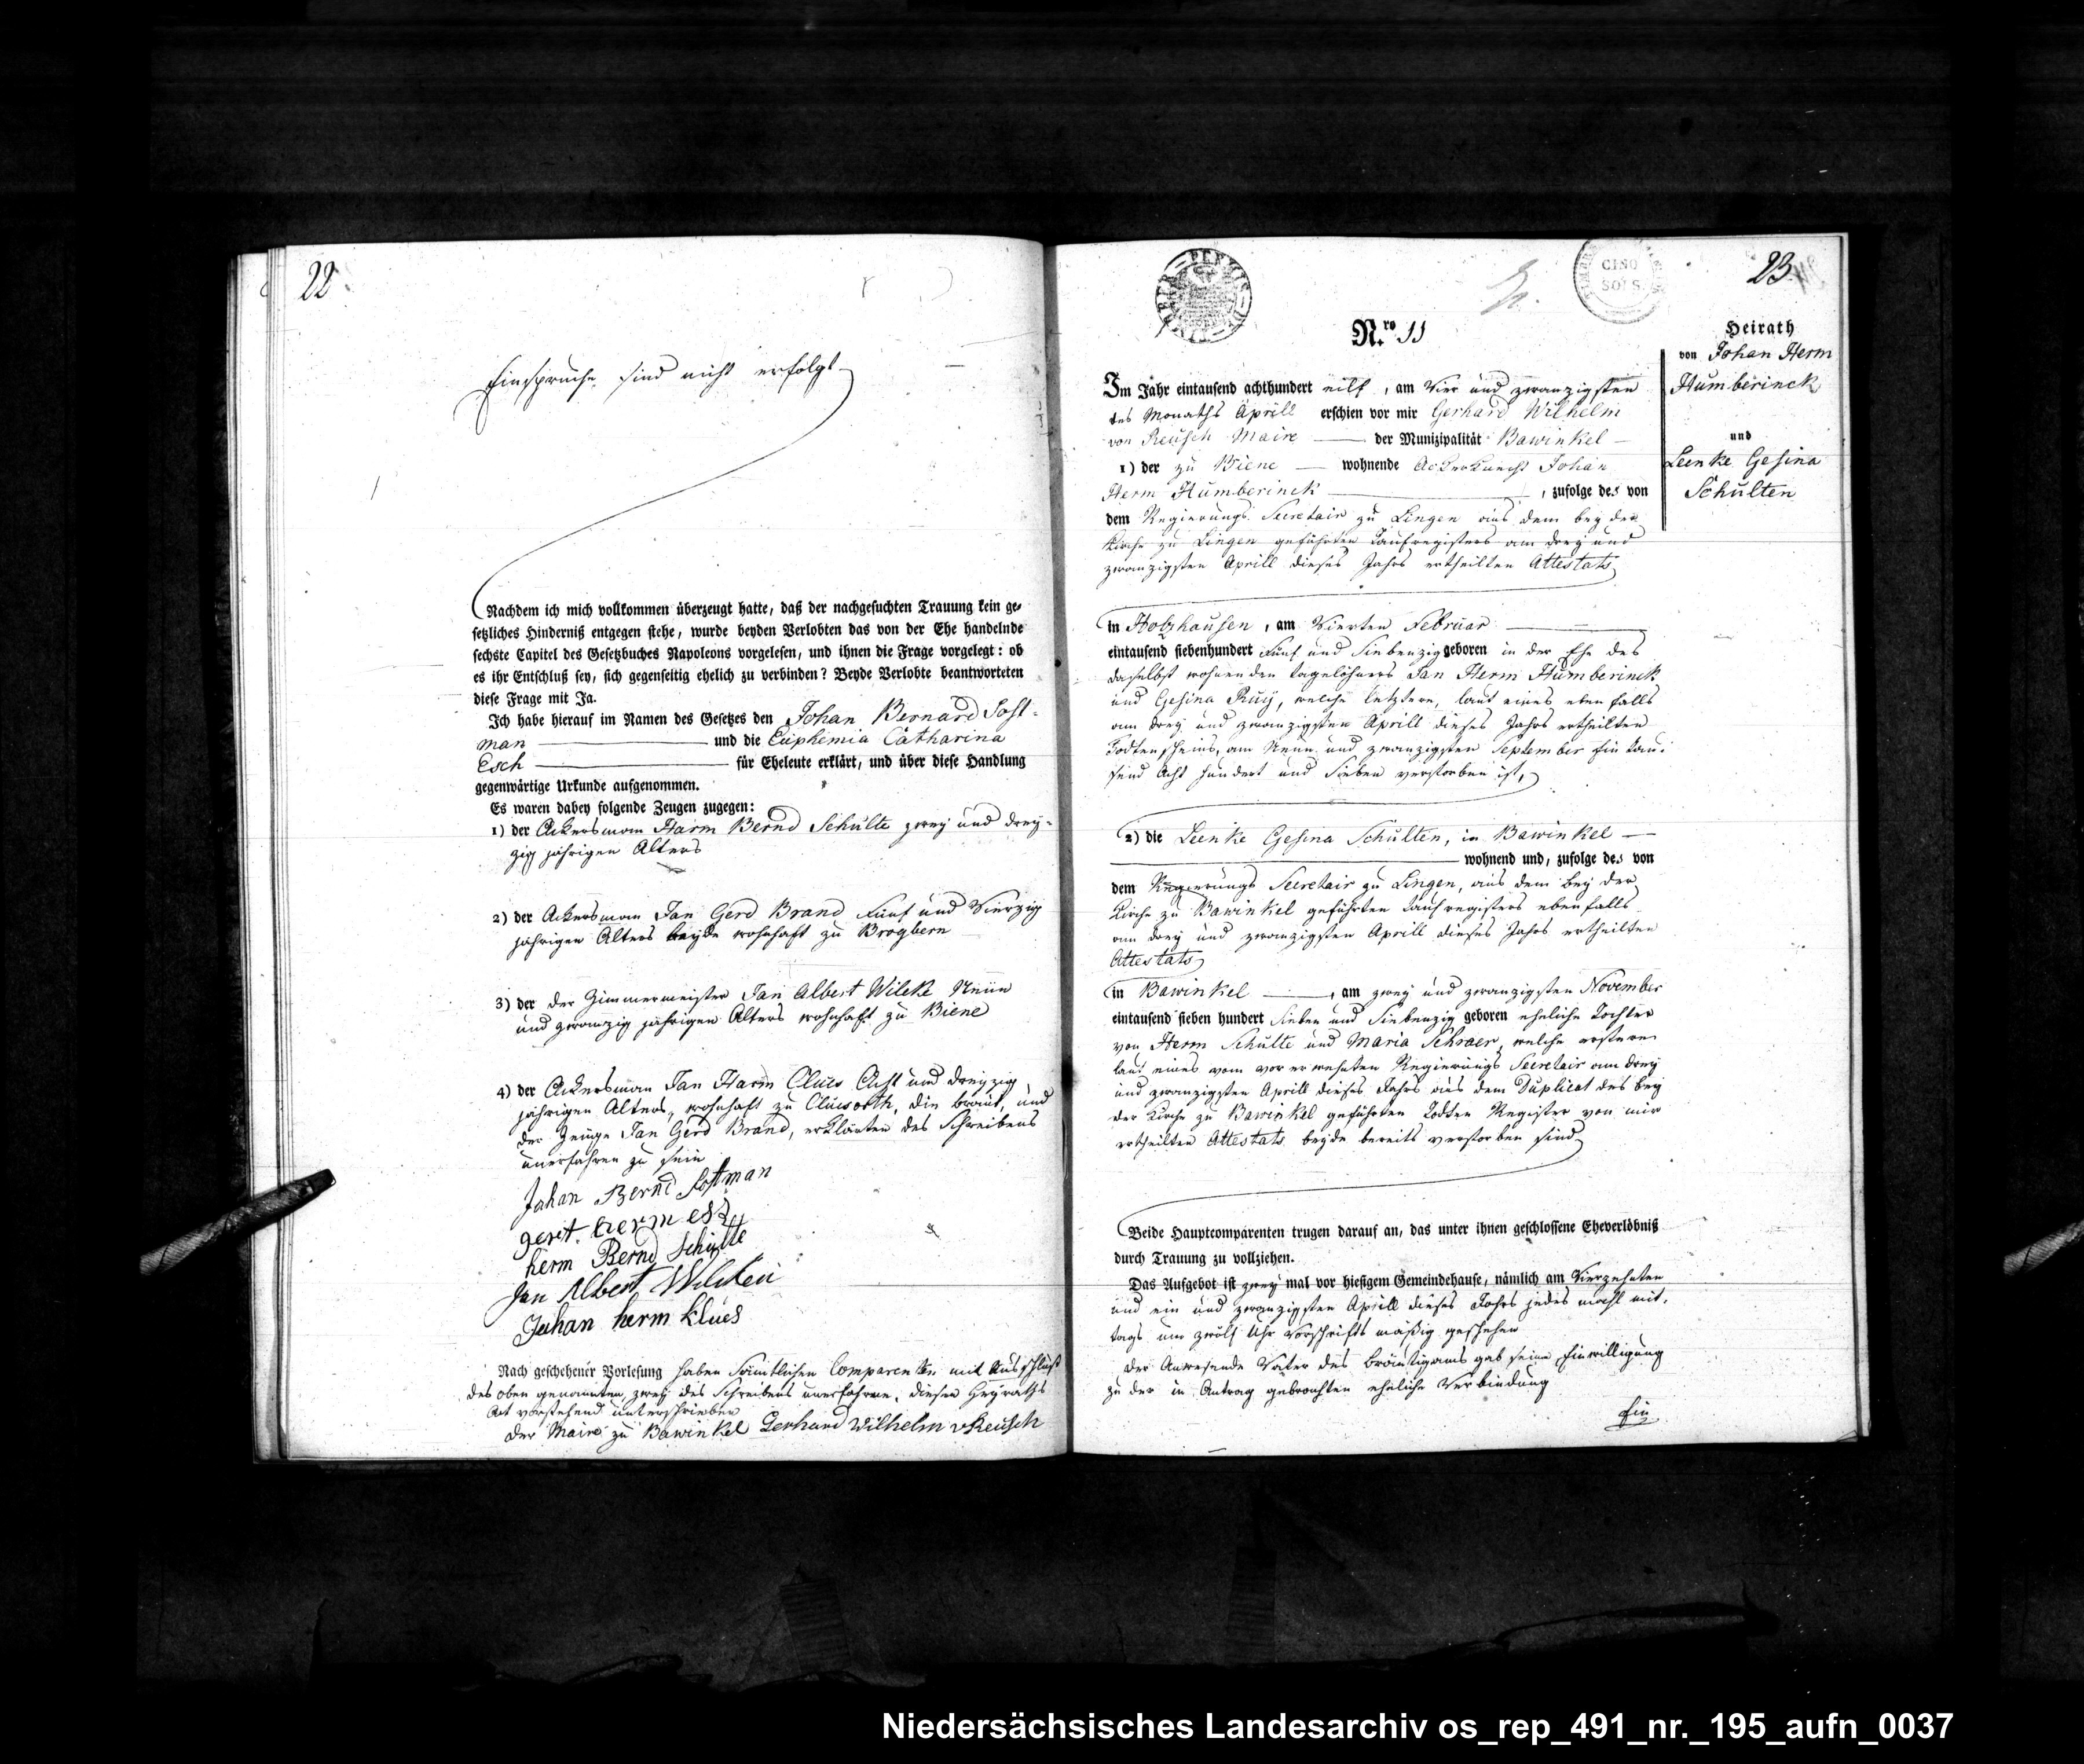 22
Einsprüche sind nicht erfolgt
Nachdem ich mich vollkommen überzeugt hatte, daß der nachgesuchten Trauung kein ge-
setzliches Hinderniß entgegen stehe, wurde beyden Verlobten das von der Ehe handelnde
sechste Capitel des Gesetzbuches Napoleons vorgelesen, und ihnen die Frage vorgelegt: ob
es ihr Entschluß sey, sich gegenseitig ehelich zu verbinden? Beyde Verlobte beantworteten
diese Frage mit Ja.
Ich habe hierauf im Namen des Gesetzes den Johan Bernard Sost-
man und die Euphemia Catharina
Esch für Eheleute erklärt, und über diese Handlung
gegenwärtige Urkunde aufgenommen.
Es waren dabey folgende Zeugen zugegen:
1) der Ackersman Harm Bernd Schulte zwey und drey-
zig jährigen Alters
2) der Ackersman Jan Gerd Brand Fünf und Vierzig
jährigen Alters beyde wohnhaft zu Brogbern
3) der der Zimmermeister Jan Albert Wilcke Neün
und zwanzig jährigen Alters wohnhaft zu Biene
4) der Ackersman Jan Harm Clues Acht und dreyzig
jährigen Alters, wohnhaft zu Clusorth, die braut, und
der Zeuge Jan Gerd Brand, erklärten des Schreibens
unerfahren zu sein
Johan Bernd Sostman
gerit herm
herm Bernd Schulte
Jan Albert Wilcken
Johan herm klues
Nach geschehener Vorlesung haben Sämtlichen Comparenten mit Ausschluß
des oben genannten zwey des Schreibens unerfahrne, diesen Heyraths
Act vorstehend unterschrieben
Der Maire zu Bawinkel Gerhard Wilhelm vReusch
CINQ
SOLS
23
Nro 11
Heirath
von Johan Herm
Humberinck
und
Leenke Gesina
Schulten
Im Jahr eintausend achthundert eilf, am Vier und zwanzigsten
des Monaths Aprill erschien vor mir Gerhard Wilhelm
von Reusch Maire der Munizipalität Bawinkel
1) der zu Biene wohnende Ackerknecht Johan
Herm Humberinck, zufolge des von
dem Regierungs Secretair zu Lingen aus dem bey der
Kirche zu Lingen geführten Taufregisters am drey und
zwanzigsten Aprill dieses Jahrs ertheilten Attestats
in Holzhausen, am Vierten Februar
eintausend siebenhundert Fünf und Siebenzig geboren in der Ehe des
daselbst wohnenden tagelöhners Jan Herm Humberinck
und Gesina Ruy, welche letztere, laut eines eben falls
am drey und zwanzigsten Aprill dieses Jahrs ertheilten
Todtenscheins, am Neun und zwanzigsten September Ein tau-
send Acht hundert und Sieben verstorben ist,
2) die Leenke Gesina Schulten, in Bawinkel
wohnend und, zufolge des von
dem Regierungs Secretair zu Lingen, aus dem bey der
Kirche zu Bawinkel geführten Taufregisters ebenfalls
am drey und zwanzigsten Aprill dieses Jahrs ertheilten
Attestats
in Bawinkel, am zwey und zwanzigsten November
eintausend sieben hundert Sieben und Siebenzig geboren eheliche Tochter
von Herm Schulte und Maria Schraer, welche erstere
laut eines vom vor erwehnten Regierungs Secretair am drey
und zwanzigsten Aprill dieses Jahrs aus dem Duplicat des bey
der Kirche zu Bawinkel geführten Todten Register von mir
ertheilten Attestats beyde bereits verstorben sind
Beide Hauptcomparenten trugen darauf an, das unter ihnen geschlossene Eheverlöbniß
durch Trauung zu vollziehen.
Das Aufgebot ist zwey mal vor hiesigem Gemeindehause, nämlich am Vierzehnten
und ein und zwanzigsten Aprill dieses Jahrs jedes mahl mit-
tags um zwölf Uhr vorschrifts mäßig geschehen
Der Anwesende Vater des Bräutigams gab seine Einwilligung
zu der in Antrag gebrachten eheliche Verbindung
Ein
Niedersächsisches Landesarchiv os_rep_491_nr._195_aufn_0037